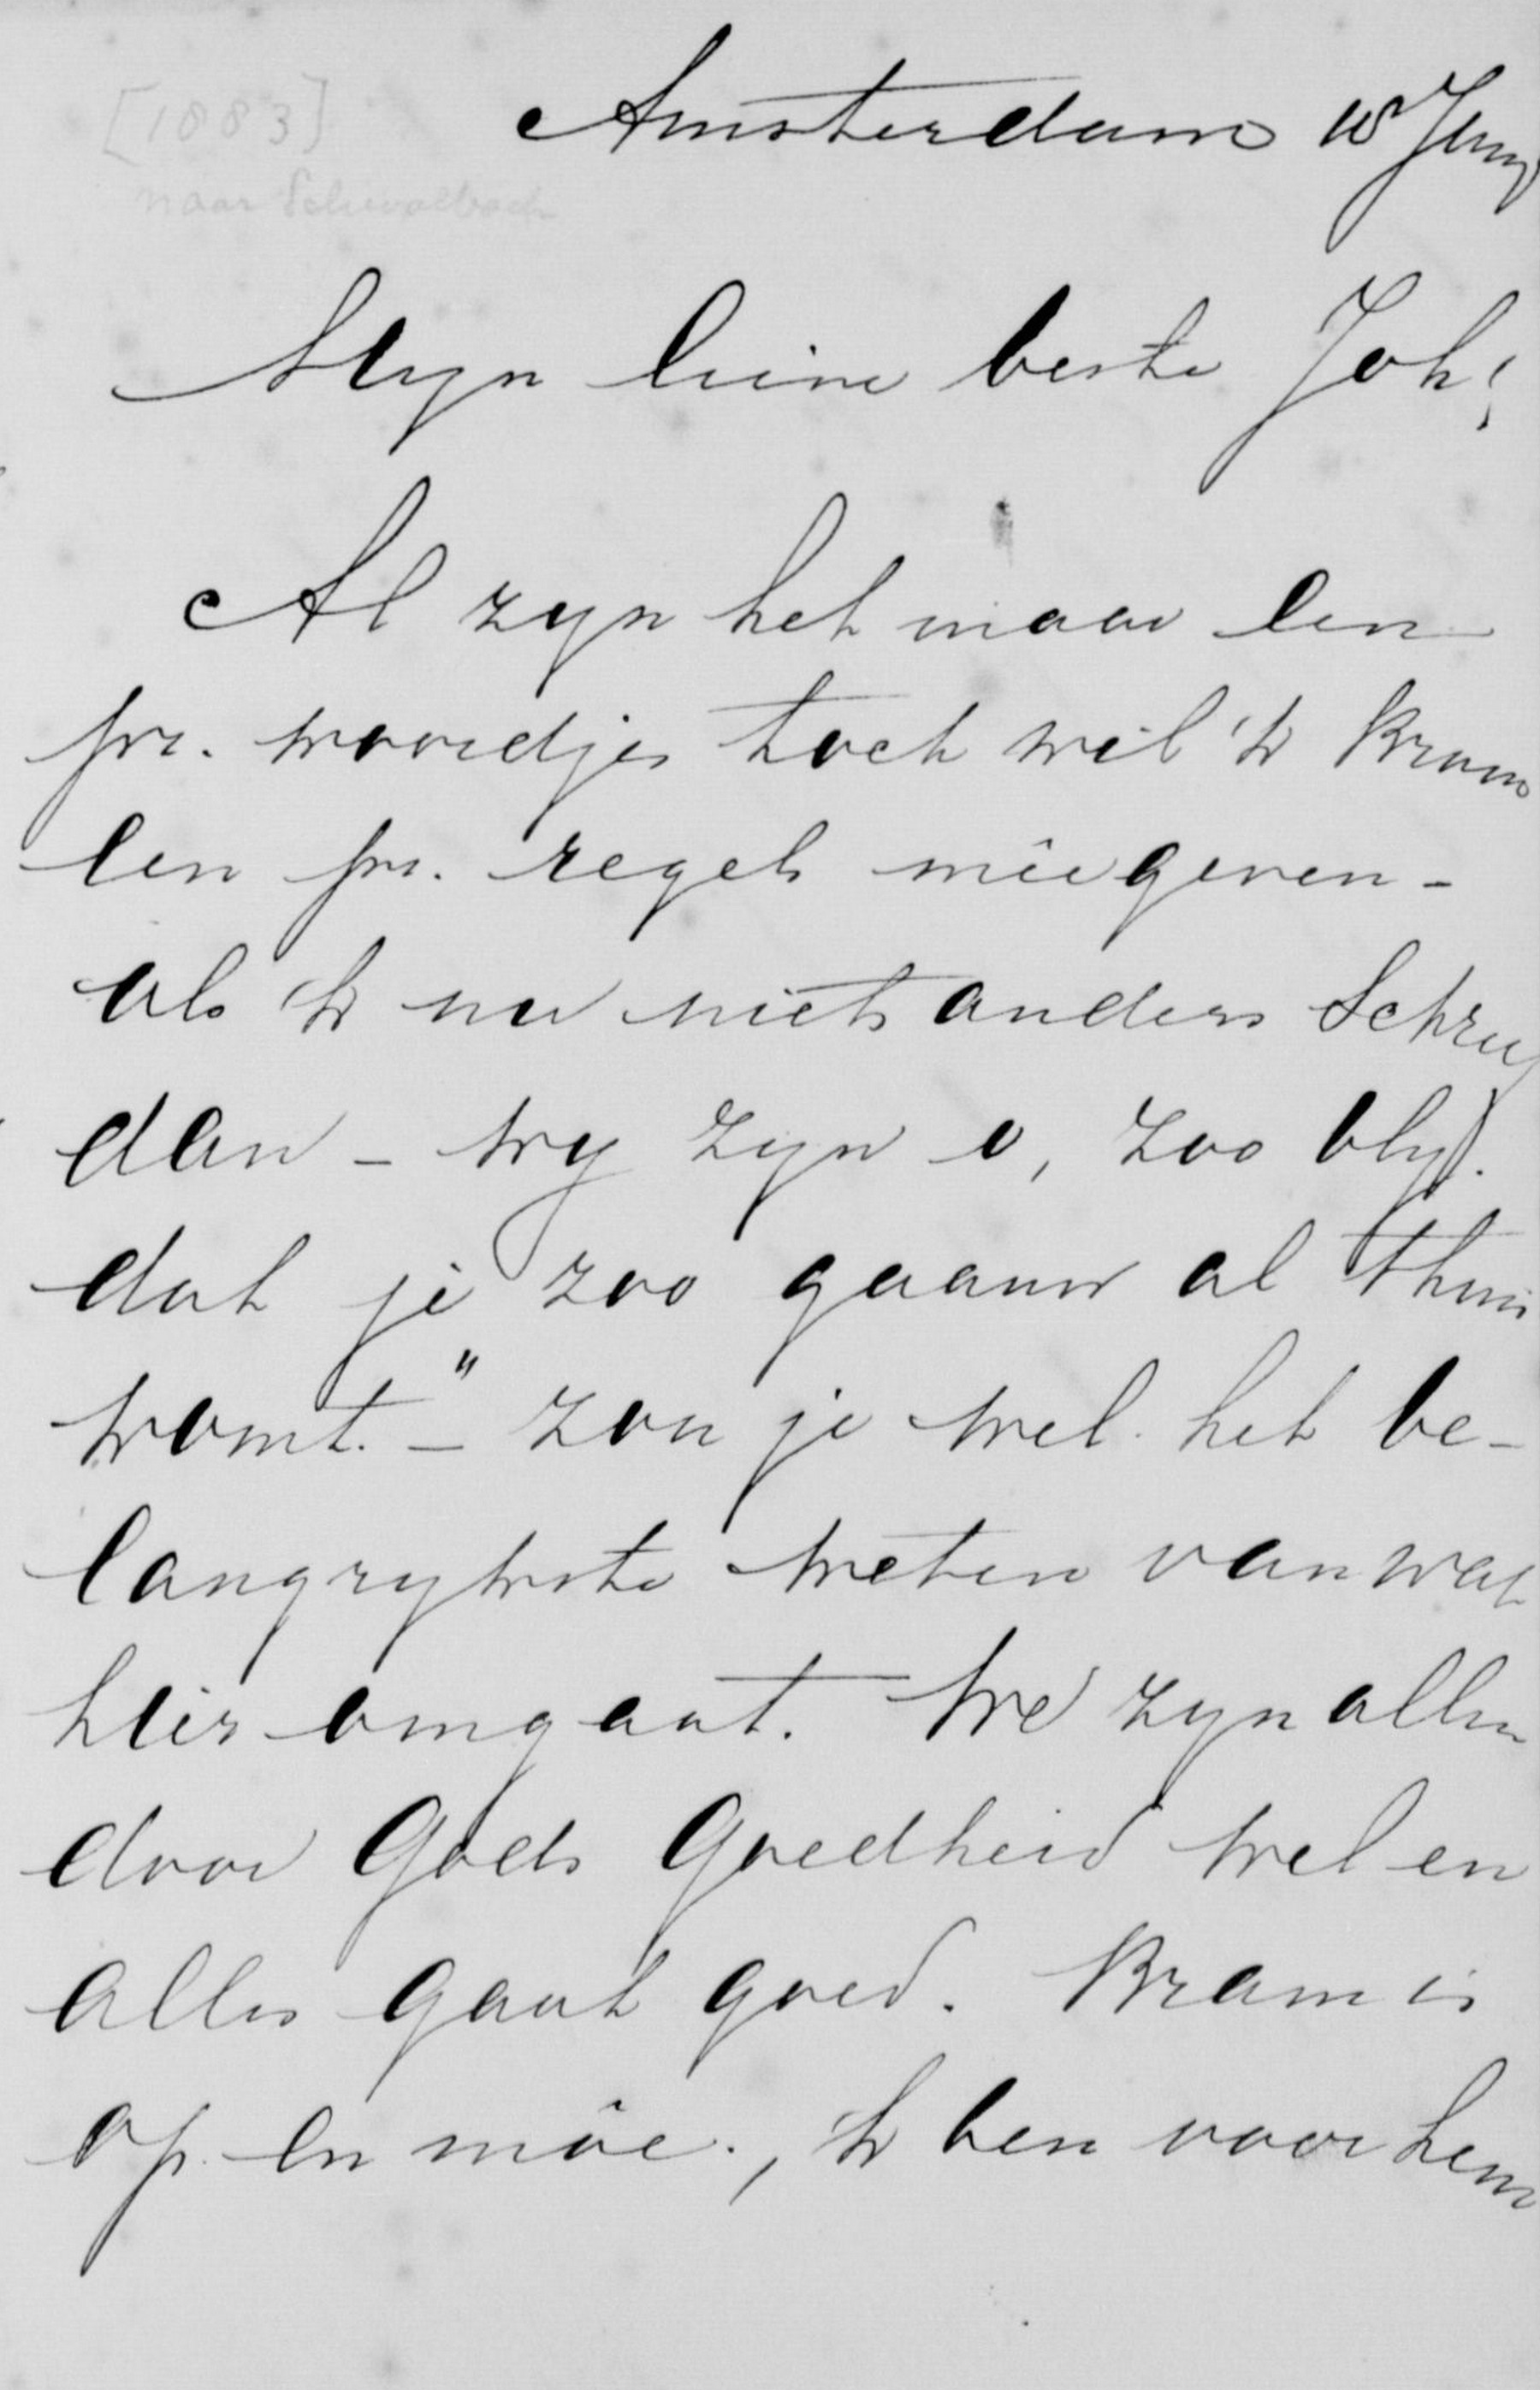 [1883]
naar Schwalbach
Amsterdam 10 Juny
Myn lieve beste Joh!
Al zyn het maar een
pr. woordjes toch wil 'k Bram
een pr. regels mêegeven -
als 'k nu niets anders schreef
dan - wy zyn o, zoo bly
dat je zoo gaauw al thuis
komt. -" zou je wel het be-
langrykste weten van wat
hier omgaat. We zyn allen
door Gods Goedheid wel en
alles gaat goed. Bram is
op en môe, 'k ben voor hem